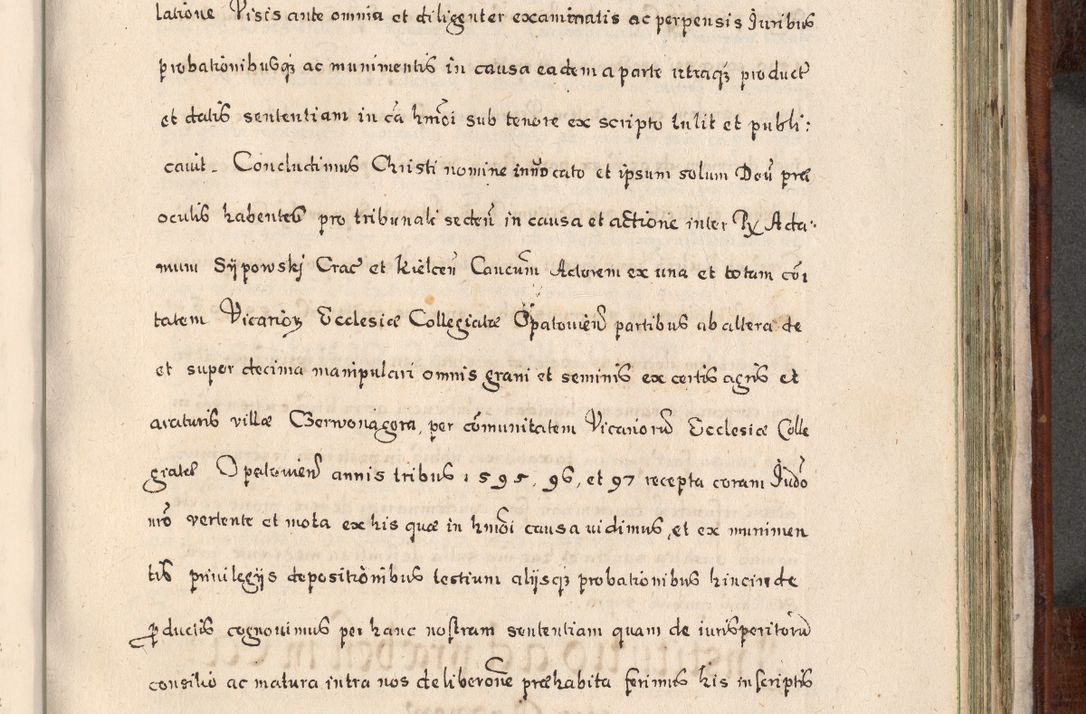 latione Visis ante omnia et diligenter examinatis ac perpensis Juribus
probationibusq₃ ac munimentis in causa eadem a parte utraq₃ product
et datis sententiam in cã hmõi sub tenore ex scripto tulit et publi:
cauit. Concludimus Christi nomine innocato et ipsum solum Deũ præ
oculis habentes pro tribunali sedeñ in causa et actione inter Rx Ada:
mum Sypowskj Crac̃ et Kielceñ Cancũm Actorem ex una et totam cõi
tatem Vicarioꝝ Ecclesiæ Collegiatæ Opatouieñ partibus ab altera de
et super decima manipulari omnis grani et seminis ex certis agris et
araturis villæ Czerwonagora, per cõmunitatem Vicariorũ Ecclesiæ Colle
giatæ Opatouieñ annis tribus 1595, 96, et 97 recepta coram Judõ
nrõ vertente et mota ex his quæ in hmõi causa uidimus, et ex munimen
tis priuilegijs depositionibus testium alijsq₃ probationibus hincinde
ꝓductis cognouimus per hanc nostram sententiam quam de iurisperitorũ
consilio ac matura intra nos deliberõne præhabita ferimus his in scriptis